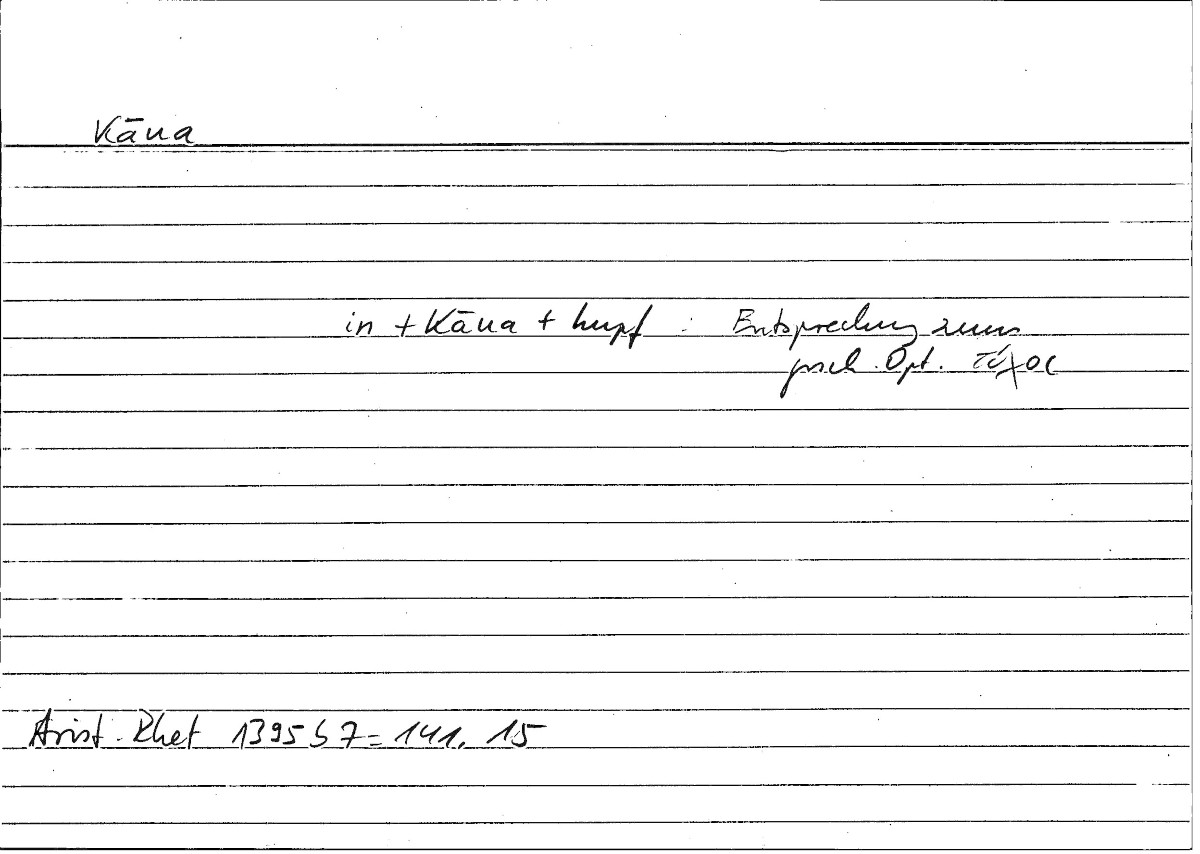 Kāna
in + Kāna + Impf : Entsprechung zum
grch. Opt. τύχοι
Arist. Rhet 1395 b 7 = 141, 15